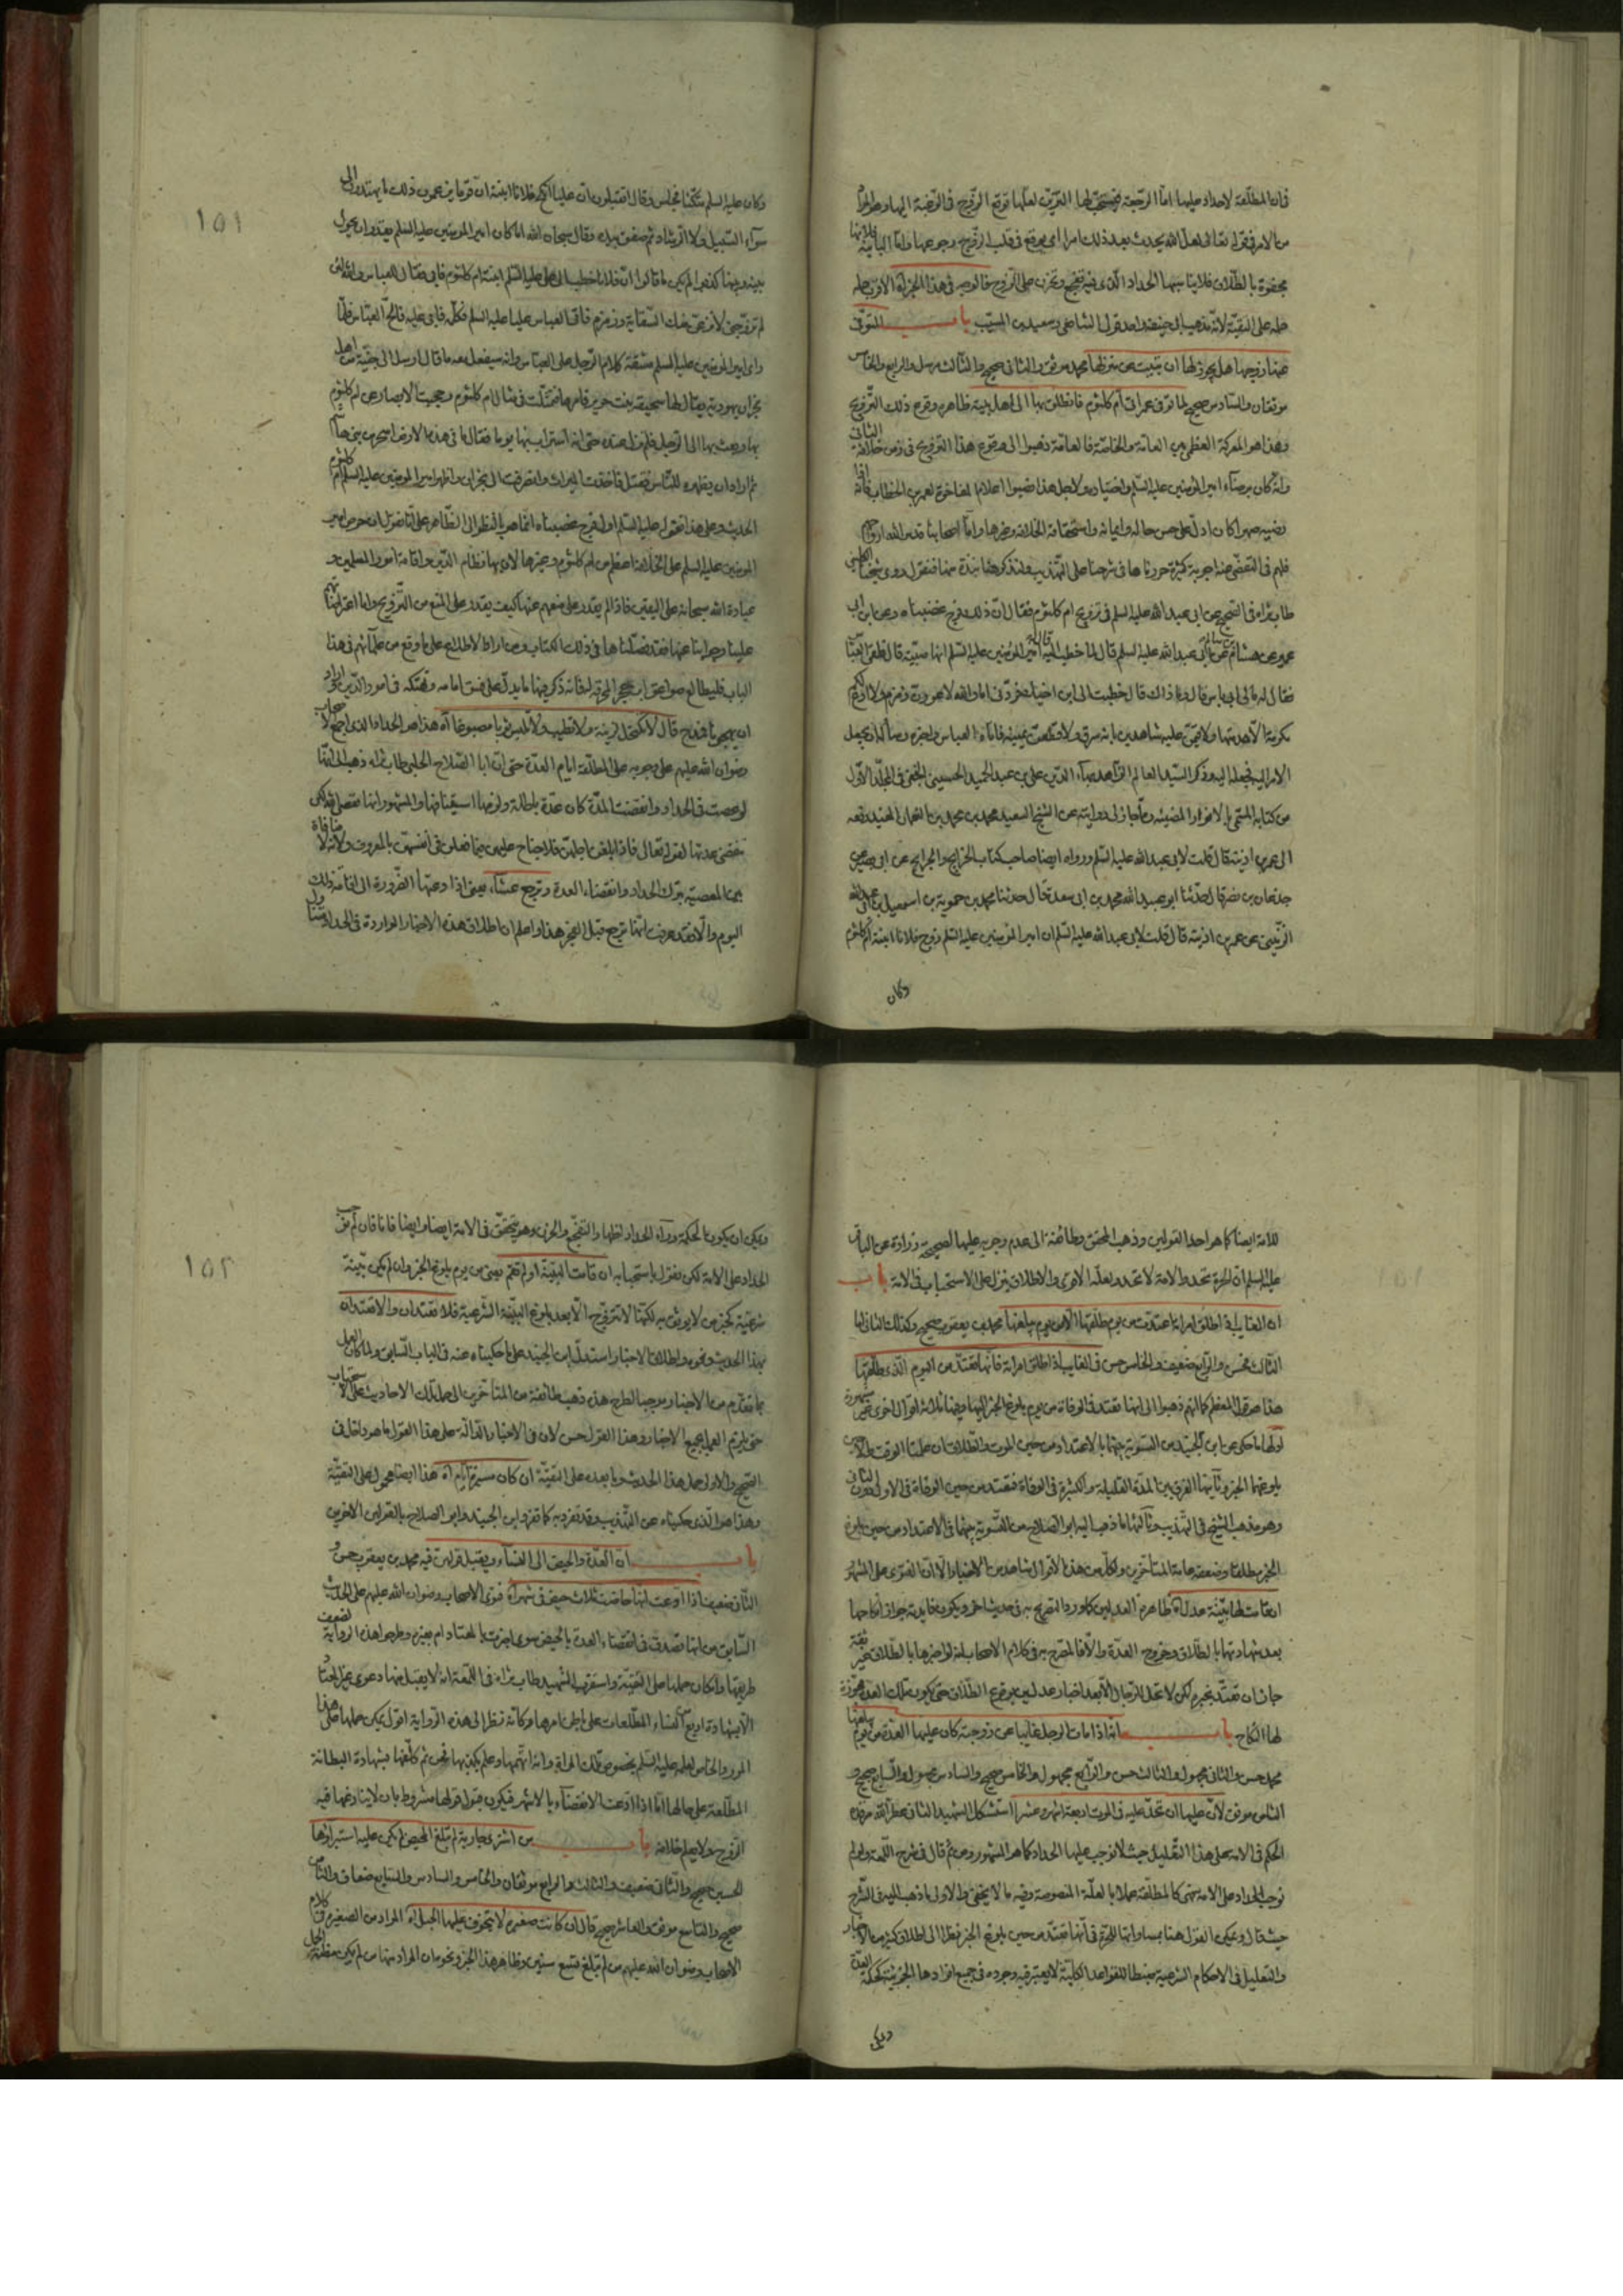 فان المطلقة لا حداد عليها اما الرجعية فيستحب لها التزين لعلها توقع الزوج في الرغبة اليها وهو المراد
من الامر في قوله تعالى لعل الله يحدث بعد ذلك امرا اي يوقع في قلب الزوج رجوعها واما البائنة فلانها
مجفوة بالطلاق فلا يناسبها الحداد الذي فيه تفجع وتحزن على الزوج فالوجه في هذا الخبر
حمله على التقية لانه مذهب ابي حنيفة واحد قولي الشافعي وسعيد بن المسيب باب المتوفى
عنها زوجها هل يجوز لها ان تبيت عن منزلها محمد موثق والثاني صحيح والثالث مرسل والرابع والخامس
موثقان والسادس صحيح لما توفى عمر اتى ام كلثوم فانطلق بها الى اهل بيته ظاهره وقوع ذلك التزويج
وهذا هو المعركة العظمى بين العامة والخاصة فالعامة ذهبوا الى وقوع هذا التزويج في زمن خلافة الثاني
وانه كان برضاء امير المؤمنين عليه السلم واختياره ولاجل هذا ضبوا اعلام المفاخرة لعمر بن الخطاب فانه اذا
رضيه صهرا كان ادل على حسن حاله وايمانه واستحقاقه الخلافة وغيرها واما اصحابنا قدس الله ارواحهم
فلهم في التفصي عنه اجوبة كثيرة حررناها في شرحنا على التهذيب ولنذكر هنا نبذة منها فنقول روى شيخنا الكليني
طاب ثراه في الصحيح عن ابي عبد الله عليه السلم في تزويج ام كلثوم فقال ان ذلك فرج غصبناه وعن ابن ابي
عمير عن هشام بن سالم عن ابي عبد الله عليه السلم قال لما خطب اليه قال له امير المؤمنين عليه السلم انها صبية قال فلقي العباس
فقال له مالي ابي باس قال وما ذاك قال خطبت الى ابن اخيك فردني اما والله لاعورن زمزم ولا ادع لكم
مكرمة الا هدمتها ولاقيمن عليه شاهدين بانه سرق ولاقطعن يمينه فاتاه العباس واخبره وساله ان يجعل
الامر اليه فجعله اليه وذكر السيد العالم بهاء الدين علي بن عبد الحميد الحسيني النجفي في المجلد الاول
من كتابه المسمى بالانوار المضيئة مما جاز لي روايته عن الشيخ السعيد محمد بن محمد بن النعمان المفيد رفعه
الى عمر بن اذينة قال قلت لابي عبد الله عليه السلم ورواه ايضا صاحب كتاب الخرايج والجرايح عن ابي بصير عن
جذعان بن نصر قال حدثنا ابو عبد الله محمد بن ابي سعد قال حدثنا محمد بن حمويه بن اسمعيل بن عبد الله
الزينبي عن عمر بن اذينة قال قلت لابي عبد الله عليه السلم ان امير المؤمنين عليه السلم زوج فلانا ابنته ام كلثوم
وكان
١٥١
وكان عليه السلم متكئا فجلس وقال اتقبلون ان عليا انكح فلانا ابنته ان قوما يزعمون ذلك ما يهتدون الى
سواء السبيل ولا الرشاد ثم صفق بيده وقال سبحان الله اما كان امير المؤمنين عليه السلم يقدر ان يحول
بينه وبينها كذبوا لم يكن ما قالوا ان فلانا خطب الى علي عليه السلم ابنته ام كلثوم فابى فقال للعباس والله لئن
لم تزوجني لانزعن منك السقاية وزمزم فاتى العباس عليا عليه السلم فكلمه فابى عليه فالح العباس فلما
راى امير المؤمنين عليه السلم مشقة كلام الرجل على العباس وانه سيفعل معه ما قال ارسل الى جنية من اهل
نجران يهودية يقال لها سحيقة بنت حريرية فامرها فتمثلت في مثال ام كلثوم وحجبت الابصار عن ام كلثوم
بها وبعث بها الى الرجل فلم تزل عنده حتى انه استراب بها يوما فقال ما في هذه الارض اسحر من بني هاشم
ثم اراد ان يظهره للناس فقتل فاخذت الميراث وانصرفت الى نجران واظهر امير المؤمنين عليه السلم ام كلثوم
الحديث وعلى هذا فقوله عليه السلم اول فرج غصبناه انما هو بالنظر الى الظاهر على انا نقول ان حرص امير
المؤمنين عليه السلم على الخلافة اعظم من ام كلثوم وغيرها لان بها نظام الدين واقامة امور المسلمين و
عبادة الله سبحانه على اليقين فاذا لم يقدر على منعهم عنها كيف يقدر على المنع من التزويج واما اعتراضاتهم
علينا وجوابنا عنها فقد فصلناها في ذلك الكتاب ومن اراد الاطلاع على ما وقع من علمائهم في هذا
الباب فليطالع صواعق ابن حجر المحرقة له فانه ذكر فيها ما يدل على فسق امامه وتهتكه في امور الدين
قال لا تكتحل لزينة ولا تطيب ولا تلبس ثوبا مصبوغا اه هذا هو الحداد الذي اجمع الاصحاب
رضوان الله عليهم على وجوبه على المطلقة ايام العدة حتى ان ابا الصلاح الحلبي طاب ثراه ذهب الى انها
لو عصت في الحداد وانقضت المدة كان عدة باطلة ولزمها استينافها والمشهور انها
تنقضي عدتها لقوله تعالى فاذا بلغن اجلهن فلا جناح عليهن فيما فعلن في انفسهن بالمعروف ولانه لا منافاة
بين المعصية بترك الحداد وانقضاء العدة وترجع عشاء يعني اذا دعتها الضرورة الى اقامة ذلك
اليوم والا فقد عرفت انها ترجع قبل الفجر هذا واعلم ان اطلاق هذه الاخبار الواردة في الحداد
للامة ايضا كما هو احد القولين وذهب المحقق وطائفة الى عدم وجوبه عليها لصحيحة زرارة عن الباقر
عليه السلم ان الحرة تحد والامة لا تحد ولعله الاقوى والاطلاق ينزل على الاستحباب في الامة باب
ان الغايب اذا طلق امراته اعتدت من يوم طلقها لا من يوم يبلغها محمد بن يعقوب صحيح وكذلك الثاني اما
الثالث فحسن والرابع ضعيف والخامس حسن في الغايب اذا طلق امراته فانها تعتد من اليوم الذي طلقها
هذا هو قول المعظم كما انهم ذهبوا الى انها تعتد في الوفاة من يوم بلوغ الخبر اليها وهنا ثلاثة اقوال اخرى غير مشهورة
اولها ما حكى عن ابن الجنيد من التسوية بينهما بالاعتداد من حين الموت والطلاق ان علمتا الوقت
بلوغهما الخبر وثانيها الفرق بين المدة القليلة والكثيرة في الوفاة فتعتد من حين الوفاة في الاول دون الثاني
وهو مذهب الشيخ في التهذيب وثالثها ما ذهب اليه ابو الصلاح من التسوية بينهما في الاعتداد من حين بلوغ
الخبر مطلقا وضعفه عامة المتاخرين ولكل من هذه الاقوال شاهد من الاخبار الا ان الفتوى على المشهور
ان قامت لها بينة عدل اه ظاهره العدلين كما ورد التصريح به في حديث اخر ويكون فايدته جواز نكاحها
بعد شهادتهما بالطلاق وخروج العدة والا فالمصرح به في كلام الاصحاب انه لو اخبرها بالطلاق غير ثقة
جاز ان تعتد بخبره لكن لا تحل للرجال الا بعد اخبار عدلين بوقوع الطلاق حتى يكون تلك العدة مجوزة
لها النكاح باب انه اذا مات الرجل غايبا عن زوجته كان عليها العدة من يوم يبلغها
محمد حسن والثاني مجهول والثالث حسن والرابع مجهول والخامس صحيح والسادس مجهول والسابع صحيح و
الثامن موثق لان عليها ان تحد عليه في الموت اربعة اشهر وعشرا استشكل الشهيد الثاني عطر الله مرقده
الحكم في الامة على هذا التعليل حيث لا نوجب عليها الحداد كما هو المشهور ومن ثم قال في شرح اللمعة ولو لم
نوجب الحداد على الامة فهي كالمطلقة عملا بالعلة المنصوصة وفيه ما لا يخفى والاولى ما ذهب اليه في الشرح
حيث قال ويمكن القول هنا بمساواتها للحرة في انها تعتد من حين بلوغ الخبر نظرا الى اطلاق كثير من الاخبار
والتعليل في الاحكام الشرعية ضبطا للقواعد الكلية لا يعتبر فيه وجوده في جميع افرادها الجزئية كحكمة العدة
ويمكن
١٥٢
ويمكن ان يكون الحكمة وراء الحداد اظهار التفجع والحزن وهو يتحقق في الامة ايضا وايضا فانا وان لم نوجب
الحداد على الامة لكن نقول باستحبابه ان قامت البينة او لم تقم يعني من يوم بلوغ الخبر وان لم يكن بينة
شرعية كخبر من لا يوثق به لكنها لا تتزوج الا بعد بلوغ البينة الشرعية فلا تعتدان والا اعتدتا
بهذا الحديث ونحوه واطلاق الاخبار استدل ابن الجنيد على ما حكيناه عنه في الباب السابق ولما كان العمل
بما تقدم من الاخبار موجبا لطرح هذه ذهب طائفة من المتاخرين الى حمل تلك الاحاديث على الاستحباب
حتى يلزم العمل بجميع الاخبار وهذا القول حسن لان في الاخبار دلالة على هذا القول ما هو داخل في
الصحيح والاولى حمل هذا الحديث وما بعده على التقية ان كان مسيرة ايام اه هذا ايضا محمول على التقية
وهذا هو الذي حكيناه عن التهذيب وقد تفرد به كما تفرد ابن الجنيد وابو الصلاح بالقولين الاخرين
باب ان العدة والحيض الى النساء ويقبل قولهن فيه محمد بن يعقوب حسن و
الثاني ضعيف اذا ادعت انها حاضت ثلاث حيض في شهر اه فتوى الاصحاب رضوان الله عليهم على الحديث
السابق من انها تصدق في انقضاء العدة بالحيض سواء اخبرت بالمعتاد ام بغيره وطرحوا هذه الرواية لضعف
طريقها وامكان حملها على التقية واستقرب الشهيد طاب ثراه في اللمعة انه لا يقبل منها دعوى غير المعتاد
الا بشهادة اربع من النساء المطلعات على باطن امرها وكانه نظر الى هذه الرواية اقول يمكن حملها على هذا
المورد والخاص لعلمه عليه السلم بخصوص تلك المراة وانه اتهمها وعلم بكذبها فمن ثم كلفها بشهادة البطانة
المطلعة على حالها اما اذا ادعت الانقضاء بالاشهر فيكون قبول قولها مشروط بان لا ينازعها فيه
الزوج ولا يعلم خلافه باب من اشترى جارية لم تبلغ المحيض لم يكن عليه استبراؤها
الحسين صحيح والثاني ضعيف والثالث والرابع موثقان والخامس والسادس والسابع ضعاف والثامن
صحيح والتاسع موثق والعاشر صحيح قال ان كانت صغيرة لا يتخوف عليها الحبل اه المراد من الصغيرة في كلام
الاصحاب رضوان الله عليهم من لم تبلغ تسع سنين وظاهر هذا الخبر ونحوه ان المراد منها من لم يكن مظنة الحمل